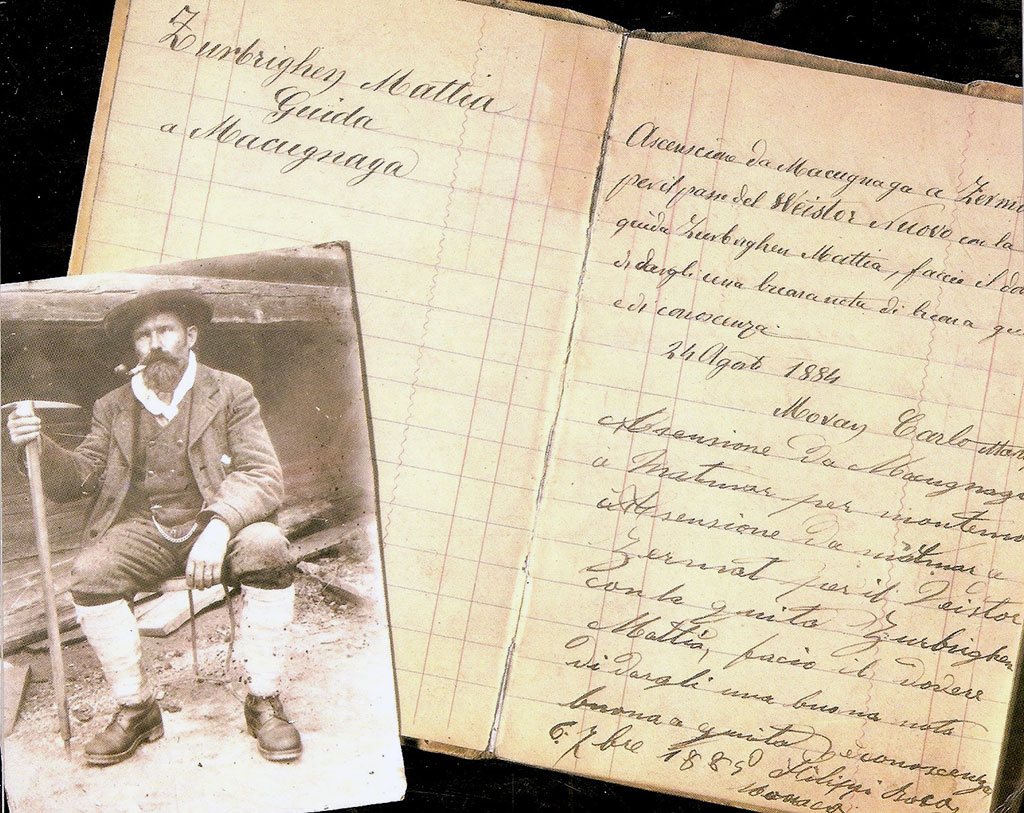 Zurbrighen Mattia
Guida
a Macugnaga
Ascensione da Macugnaga a Zerma
per il passo del Weistor Nuovo con la
guida Zurbrighen Mattia, faccio il do
di dargli una buona nota di buona gu
e di conoscenza.
24 Agost 1884
Moran Carlo
Assensione da Macugnaga
a Matmar per montemo
è Assensione da matmar a
Zermat per il Veistor
con la guita Zurbrighen
Mattia, facio il dovere
di dargli una buona nota
buona a guita conoscenza
6. 7bre 188 Filippi